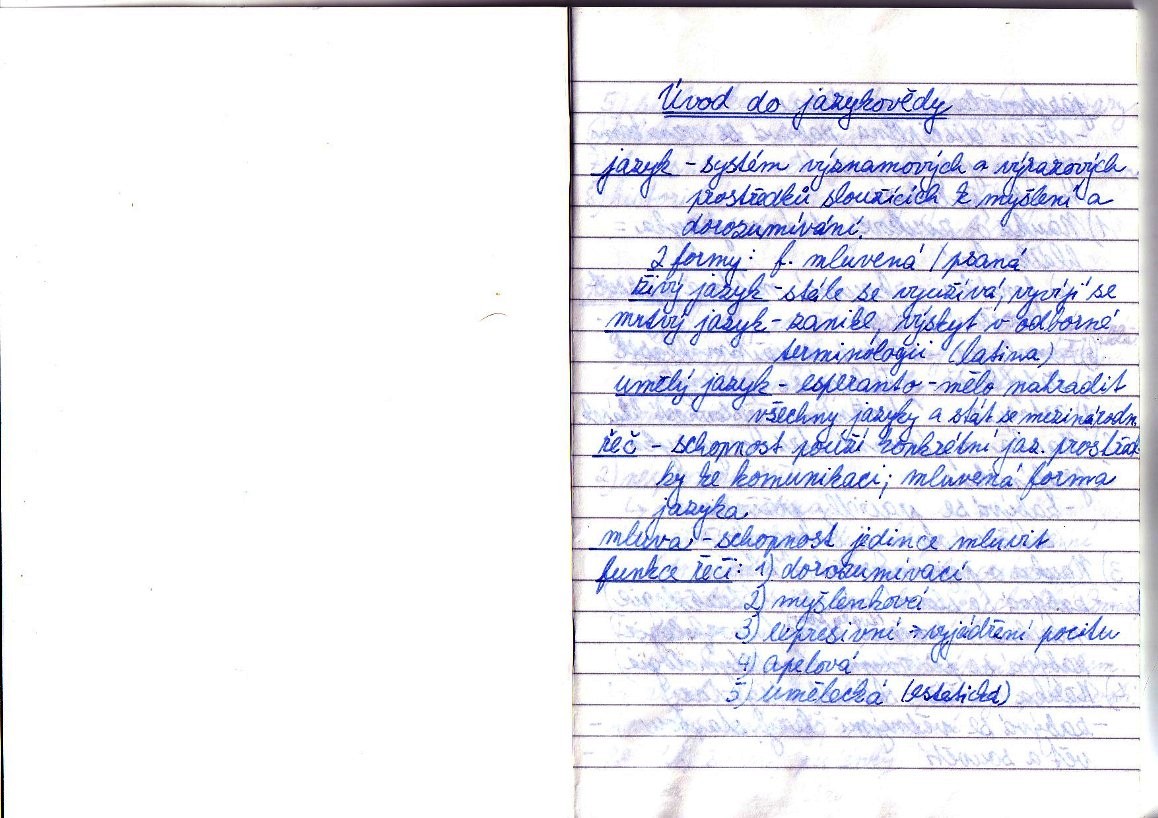 Úvod do jazykovědy
jazyk - systém významových a výrazových
prostředků sloužících k myšlení a
dorozumívání.
2 formy: f. mluvená / psaná
živý jazyk - stále se využívá, vyvíjí se
mrtvý jazyk - zanikl, výskyt v odborné
terminologii (latina)
umělý jazyk - esperanto - mělo nahradit
všechny jazyky a stát se mezinárodn
řeč - schopnost použí konkrétní jaz. prostřed-
ky ke komunikaci; mluvená forma
jazyka
mluva - schopnost jedince mluvit
funkce řeči: 1) dorozumívací
2) myšlenková
3) expresivní - vyjádření pocitu
4) apelová
5) umělecká (estetická)